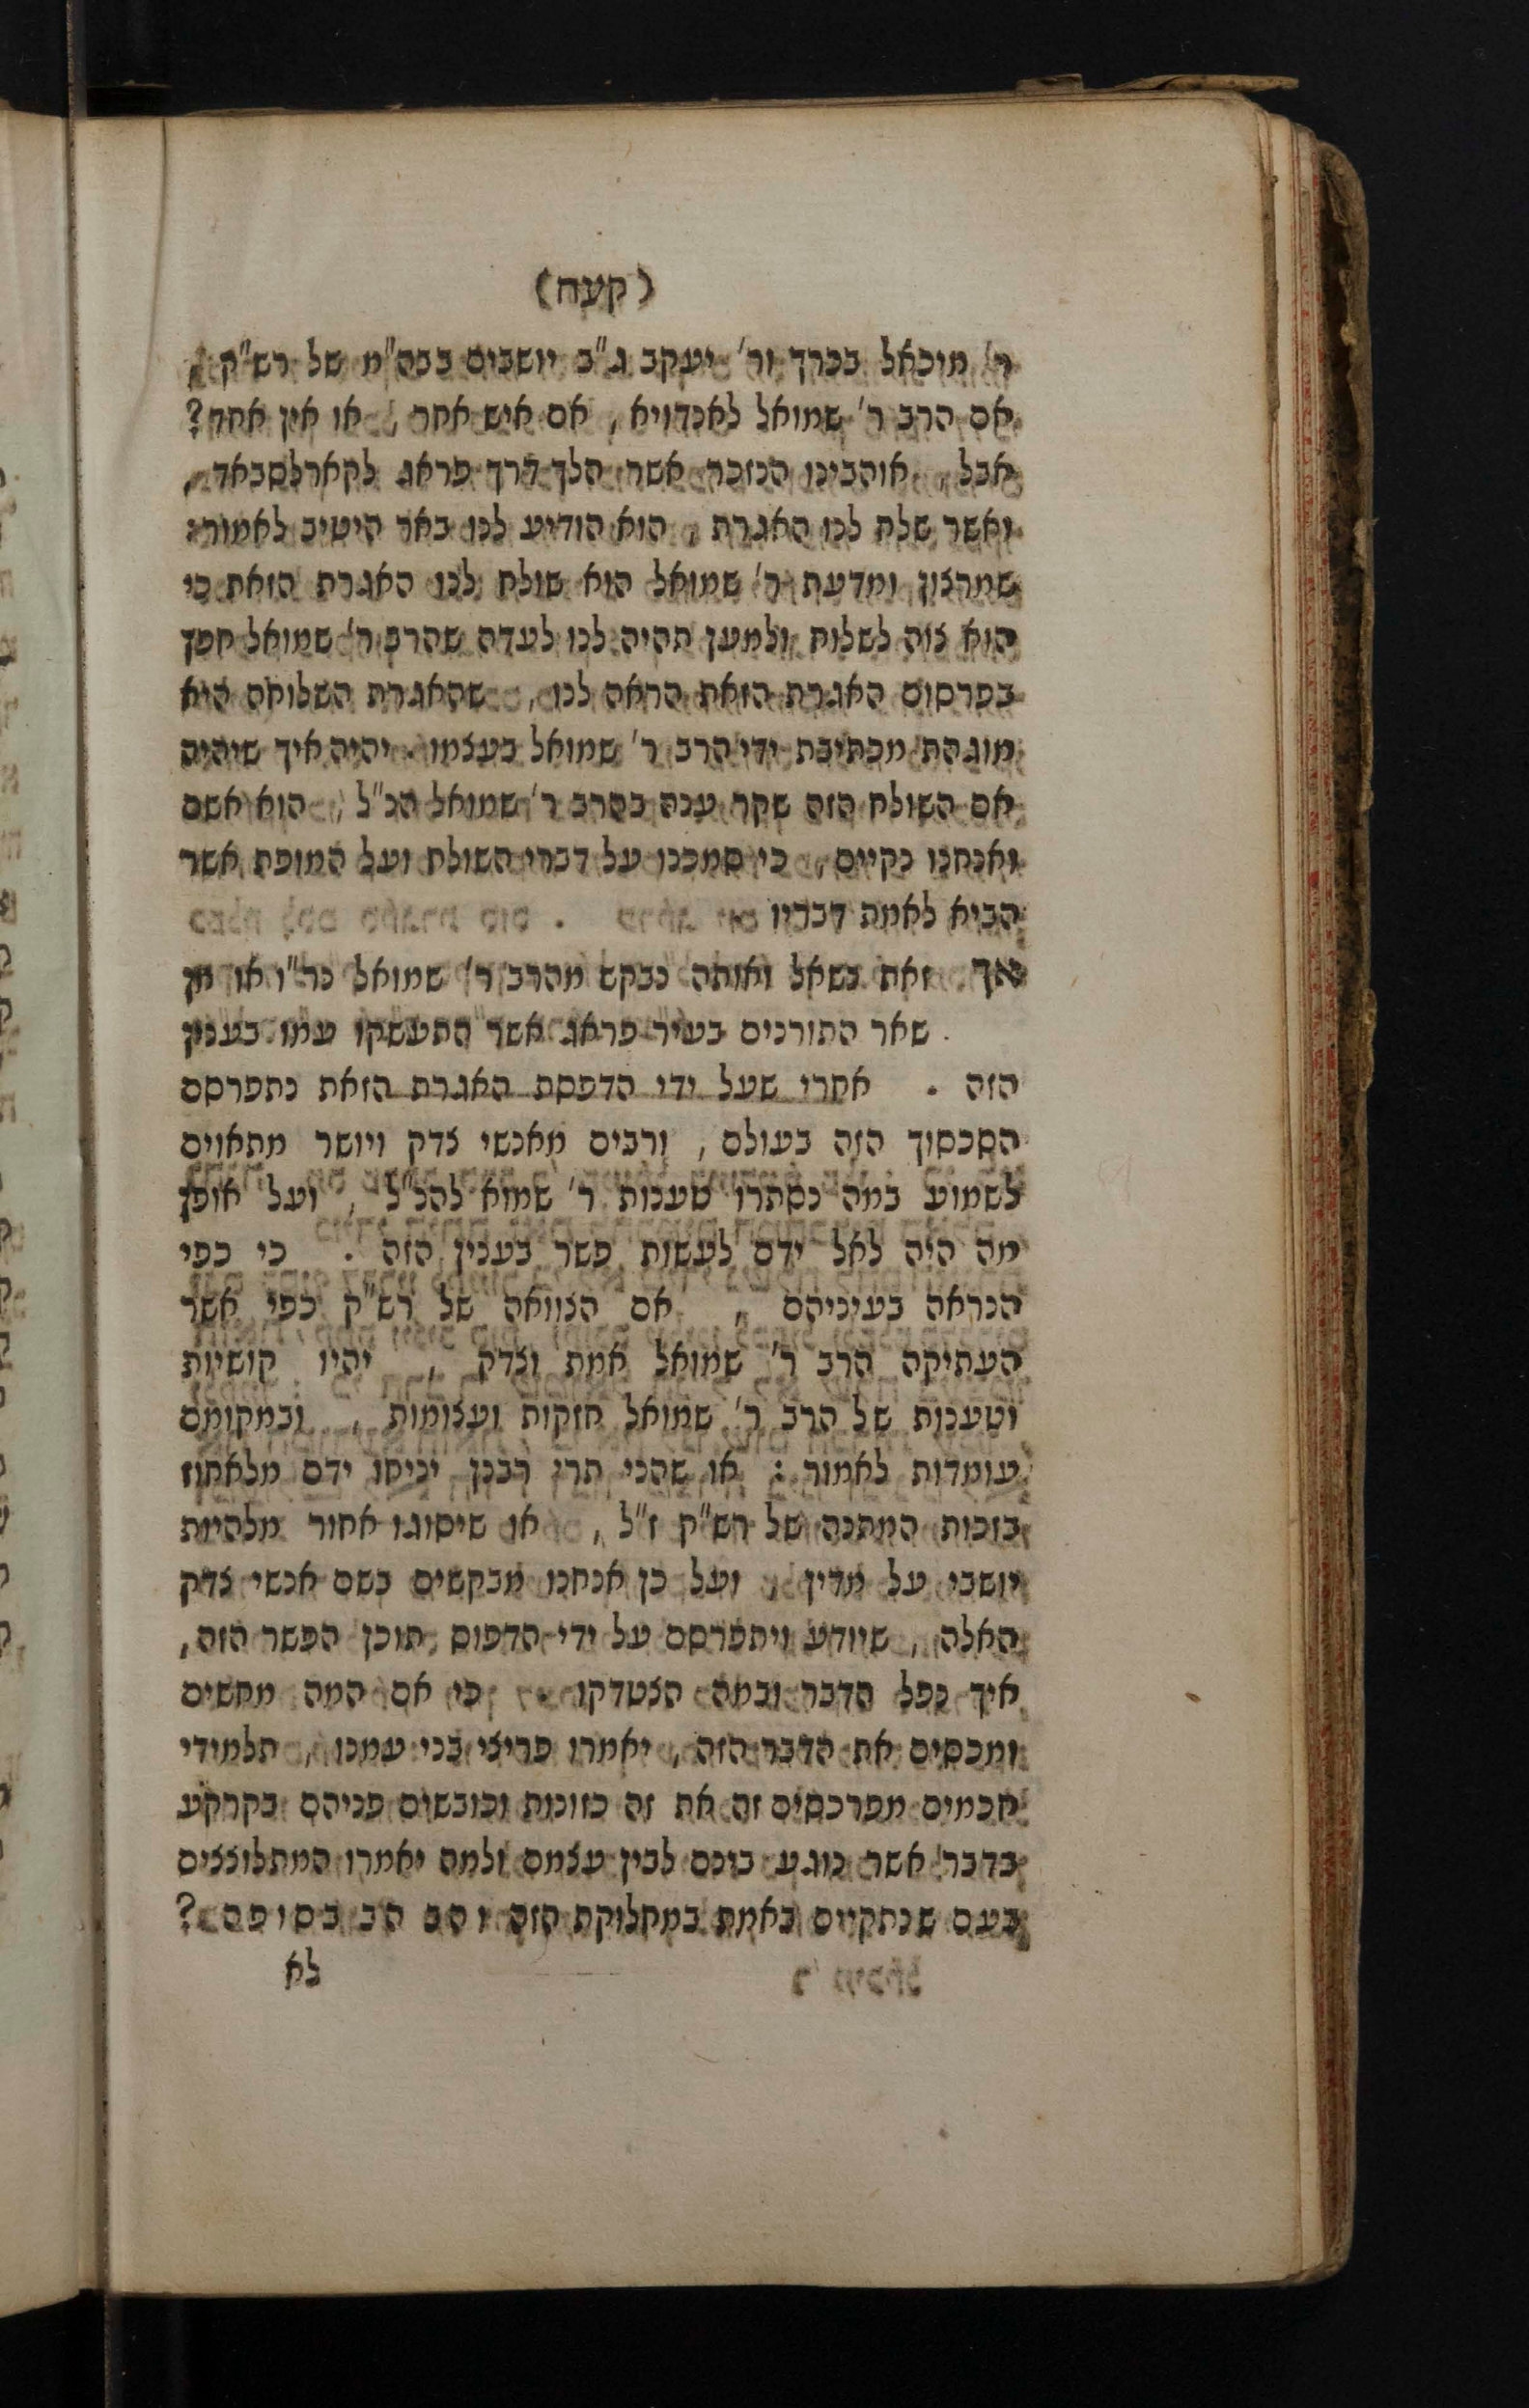 (קעח)
ר' מיכאל בכרך ור' יעקב ג"כ יושבים בבה"מ של רש"ק,
אם הרב ר' שמואל לאנדויא, אם איש אחר, או אין אחד?
אבל, אוהבינו הנזכר אשר הלך דרך פראג לקארלסבאד,
ואשר שלח לנו האגרת, הוא הודיע לנו באר היטיב לאמור:
שמרצון ומדעת ר' שמואל הוא שולח לנו האגרת הזאת כי
הוא צוה לשלוח ולמען תהיה לנו לעדה שהרב ר' שמואל חפץ
בפרסום האגרת הזאת הראה לנו, שהאגרת השלוחה היא
מוגהת מכתיבת ידי הרב ר' שמואל בעצמו. יהיה איך שיהיה
אם השולח הזה שקר ענה בהרב ר' שמואל הנ"ל, הוא אשם
ואנחנו נקיים, כי סמכנו על דברי השולח ועל המופת אשר
הביא לאמת דבריו
אך זאת נשאל ואותה נבקש מהרב ר' שמואל נר"ו או מן
שאר התורנים בעיר פראג אשר התעשקו עמו בענין
הזה. אחרי שעל ידי הדפסת האגרת הזאת נתפרסם
הסכסוך הזה בעולם, ורבים מאנשי צדק ויושר מתאוים
לשמוע במה נסתרו טענות ר' שמוא להנ"ל, ועל אופן
מה היה לאל ידם לעשות פשר בענין הזה. כי כפי
הנראה בעיניהם, אם הצוואה של רש"ק כפי אשר
העתיקה הרב ר' שמואל אמת וצדק, יהיו קושיות
וטענות של הרב ר' שמואל חזקות ועצומות, ובמקומם
עומדות לאמור: או שהני תרי רבנן יניחו ידם מלאחוז
בזכות המתנה של רש"ק ז"ל, או שיסוגו אחור מלהיות
יושבי על מדין, ועל כן אנחנו מבקשים בשם אנשי צדק
האלה, שיודע ויתפרסם על ידי הדפוס, תוכן הפשר הזה,
איך נפל הדבר ובמה הצטדקו כי אם המה מחשים
ומכסים את הדבר הזה, יאמרו פריצי בני עמנו, תלמידי
חכמים מפרכסים זה את זה כזונות וכובשים פניהם בקרקע
בדבר אשר נוגע בינם לבין עצמם ולמה יאמרו המתלוצצים
בעם שנתקיים באמת במחלוקת הזה והב הב בסופה?
לא